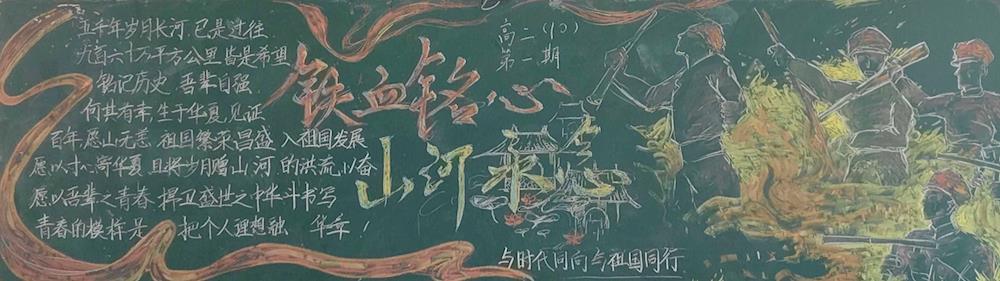 五千年岁月长河，已是过往
九百六十万平方公里皆是希望
铭记历史，吾辈自强
何其有幸，生于华夏，见证
百年愿山无恙，祖国繁荣昌盛，入祖国发展
愿以寸心寄华夏，且将岁月赠山河，的洪流，以奋
愿以吾辈之青春，捍卫盛世之中华斗书写
青春的模样是 把个人理想融 华章！
铁血铭心
山河来志
高二（10）
第一期
与时代同向与祖国同行